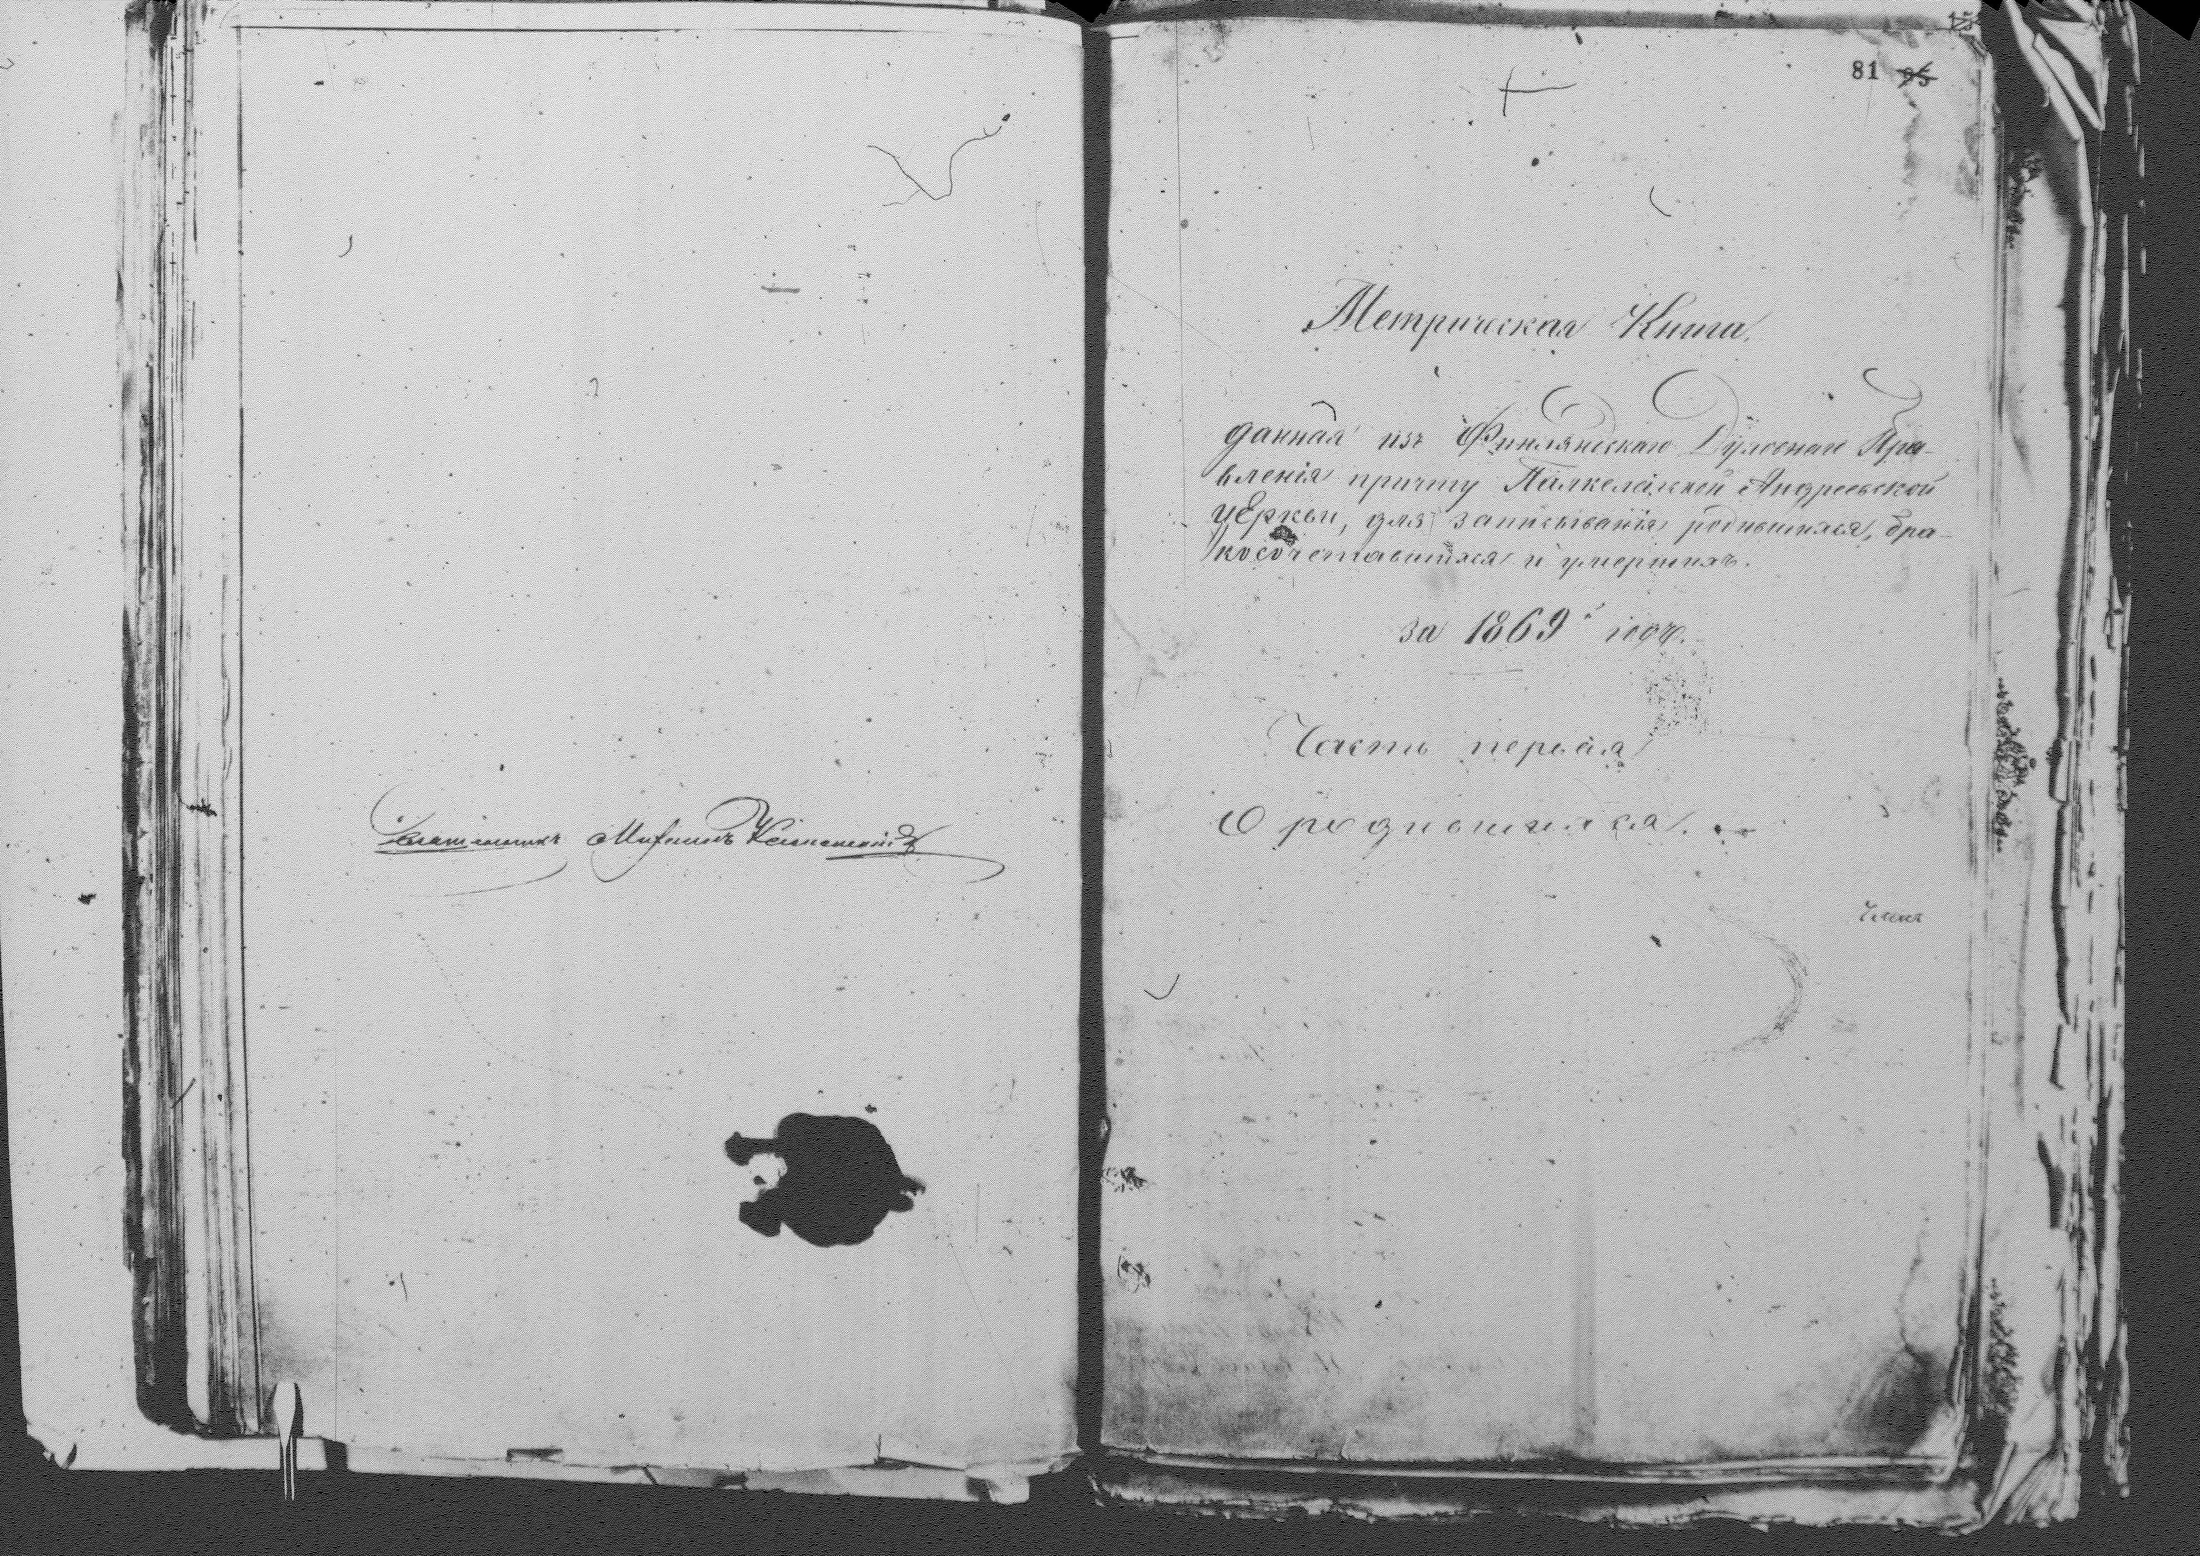 Священникъ Михаилъ
81 95
Метрическая Книга,
данная изъ Финляндскаго Духовнаго Пра-
вленія причту Палкельской Андреевской
церкви, для записыванія родившихся, бра-
косочетавшихся и умершихъ.
за 1869й годъ.
Часть первая
О родившихся.
Членъ